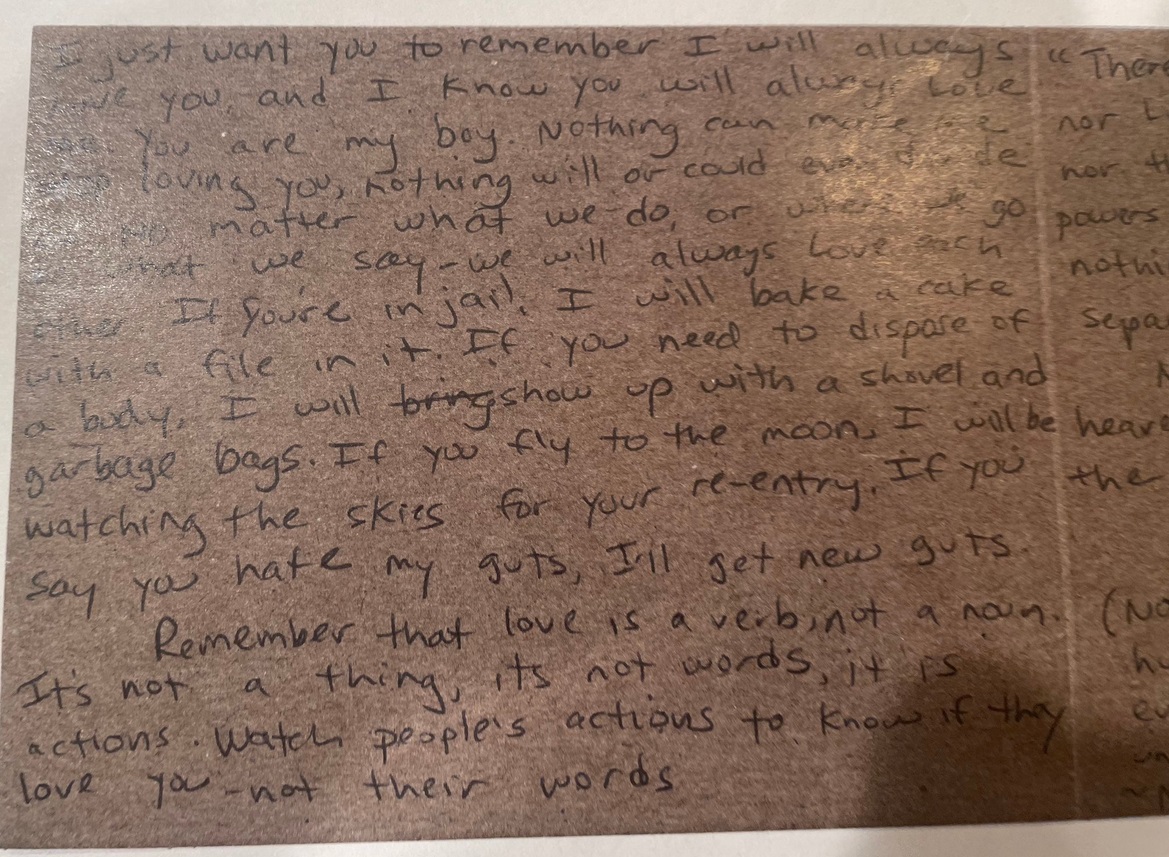 I just want you to remember I will always
you, and I know you will always Love
You are my boy. Nothing can make me
loving you, nothing will or could ever divide
No matter what we do, or where we go
what we say - we will always Love each
other. If you're in jail, I will bake a cake
with a file in it. If you need to dispose of
a body, I will bring show up with a shovel and
garbage bags. If you fly to the moon, I will be
watching the skies for your re-entry. If you
say you hate my guts, I'll get new guts.
Remember that love is a verb, not a noun.
It's not a thing, its not words, it is
actions. Watch people's actions to know if they
love you - not their words
"There
nor
nor
powers
nothi
sepa
hear
the
(No